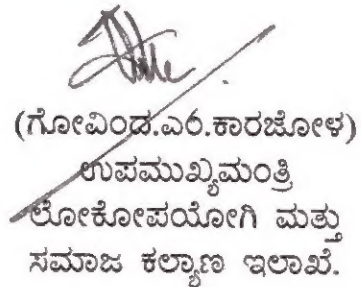 (ಗೋವಿಂದ.ಎಂ.ಕಾರಜೋಳ)
ಉಪಮುಖ್ಯಮಂತ್ರಿ
ಲೋಕೋಪಯೋಗಿ ಮತ್ತು
ಸಮಾಜ ಕಲ್ಯಾಣ ಇಲಾಖೆ.